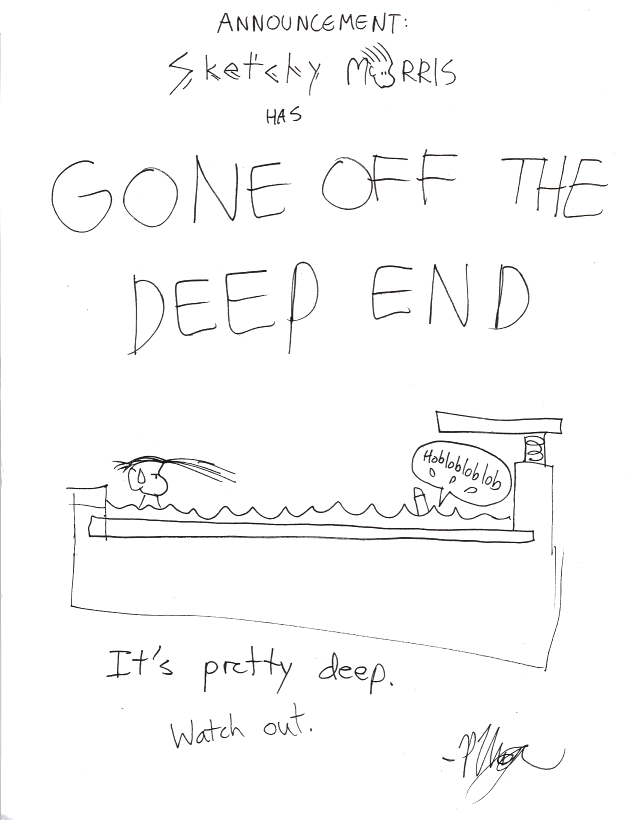 ANNOUNCEMENT:
Sketchy MORRIS
HAS
GONE OFF THE
DEEP END
Hoblobloblob
It's pretty deep.
Watch out.